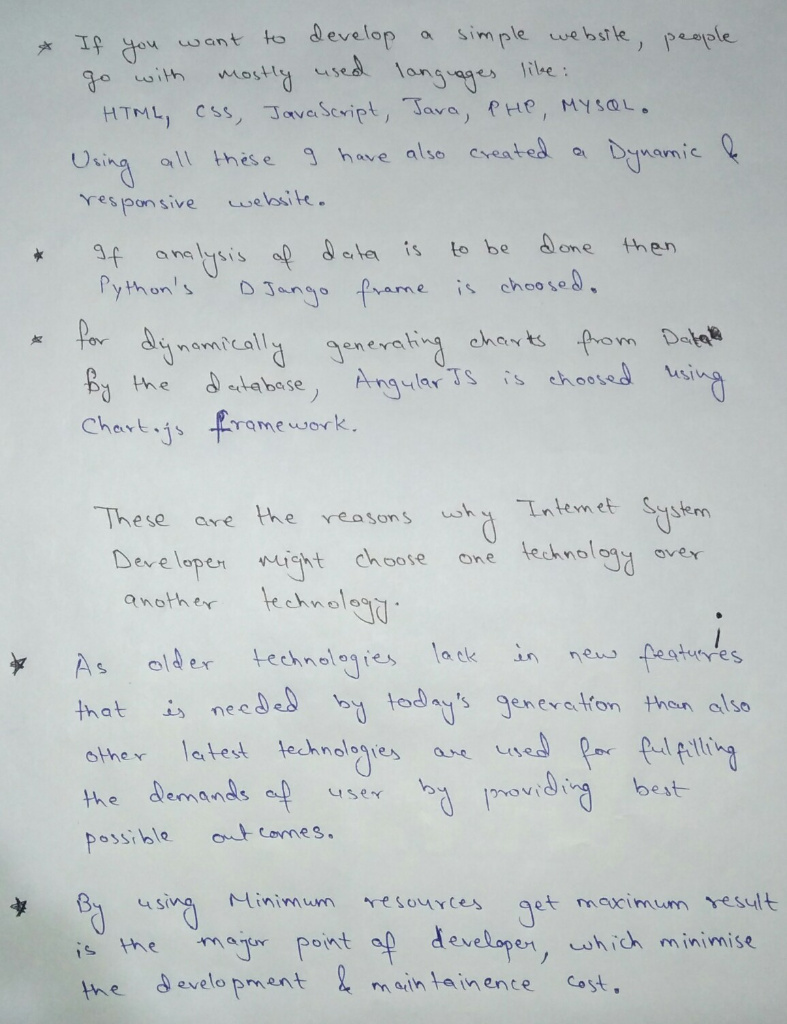 * If you want to develop a simple website, people
go with mostly used languages like:
HTML, CSS, JavaScript, Java, PHP, MYSQL.
Using all these I have also created a Dynamic &
responsive website.
* If analysis of data is to be done then
Python's DJango frame is choosed.
* for dynamically generating charts from Data
By the database, AngularJS is choosed using
Chart.js framework.
These are the reasons why Internet System
Developer might choose one technology over
another technology.
* As older technologies lack in new features
that is needed by today's generation than also
other latest technologies are used for fulfilling
the demands of user by providing best
possible outcomes.
* By using Minimum resources get maximum result
is the major point of developer, which minimise
the development & maintainence cost.